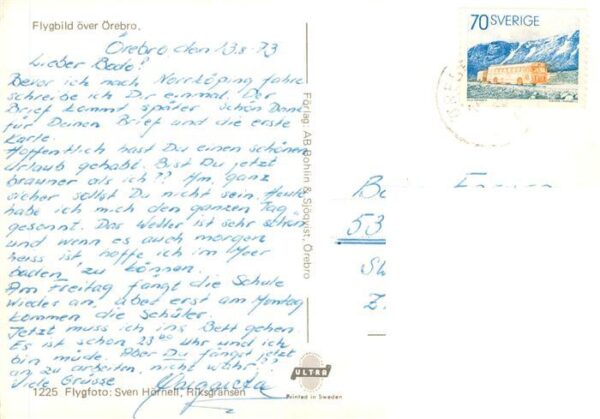 Flygbild över Örebro.
Örebro den 13.8-73
Lieber Bodo!
Bevor ich nach Norrköping fahre
schreibe ich Dir einmal. Der
Brief kommt später schön Danke
für Deinen Brief und die erste
Karte.
Hoffentlich hast Du einen schönen
Urlaub gehabt. Bist Du jetzt
brauner als ich?? Am ganz
sicher sollst Du nicht sein. Heute
habe ich mich den ganzen Tag
gesonnt. Das Wetter ist sehr schön
und wenn es auch morgen
heiss ist, hoffe ich im Meer
baden zu können.
Am Freitag fängt die Schule
wieder an, aber erst am Montag
kommen die Schüler.
Jetzt muss ich ins Bett gehen.
Es ist schon 23⁰⁰ Uhr und ich
bin müde. Aber Du fängst jetzt
an zu arbeiten, nicht wahr!
Viele Grüsse
1225 Flygfoto: Sven Hörnell, Riksgränsen
Förlag: AB Bohlin & Sjöqvist, Örebro
ULTRA
Printed in Sweden
70 SVERIGE
53